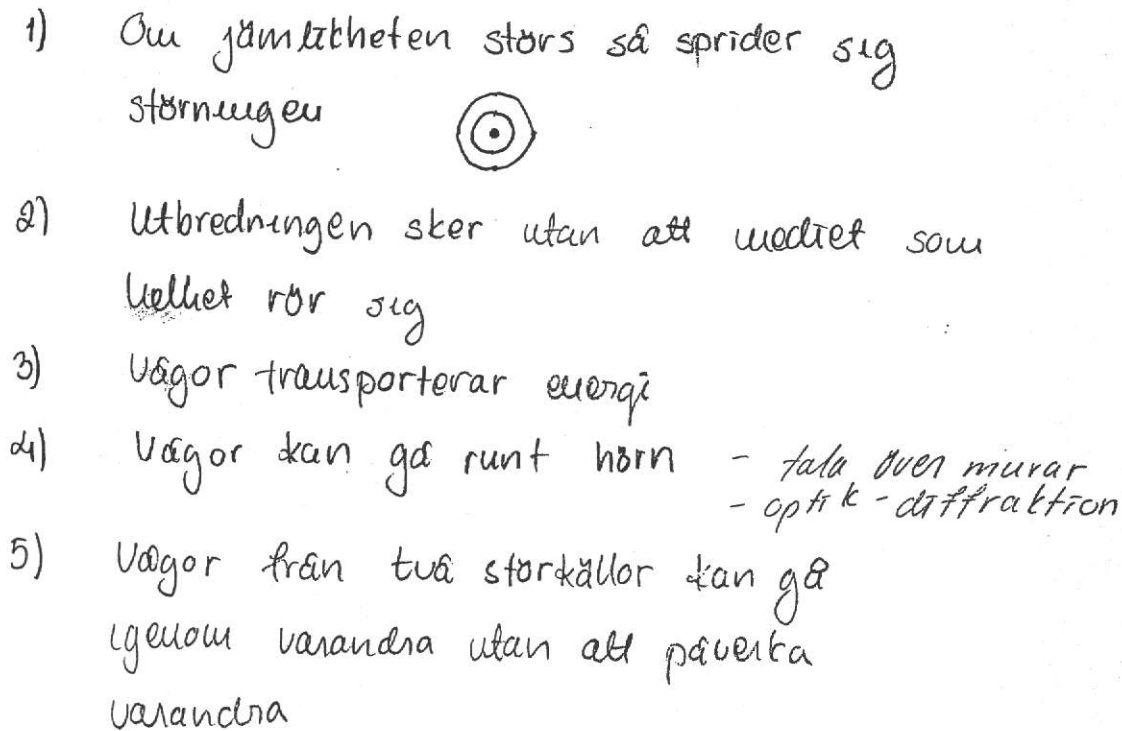 1) Om jämlikheten störs så sprider sig
störningen
2) Utbredningen sker utan att mediet som
helhet rör sig
3) Vågor transporterar energi
4) Vågor kan gå runt hörn - tala över murar
- optik - diffraktion
5) Vågor från två störkällor kan gå
igenom varandra utan att påverka
varandra